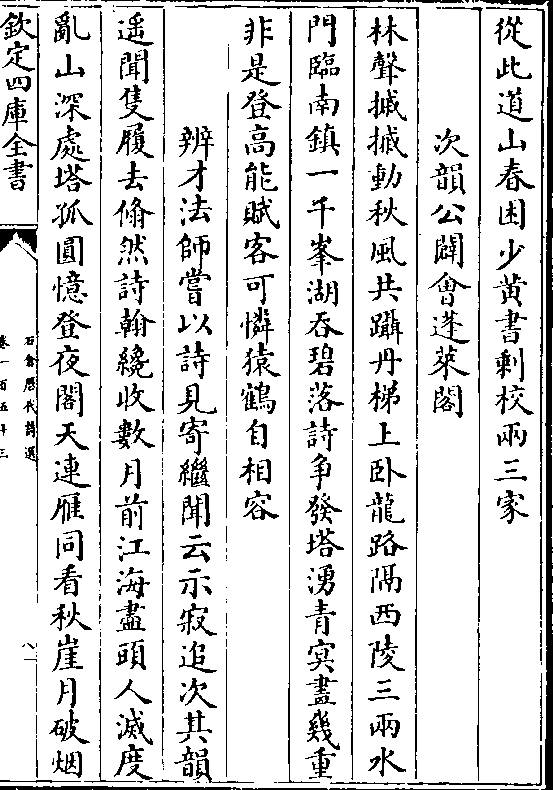 從此道山春困少黄書剰校兩三家
次韻公闢會蓬萊閣
林聲摵摵動秋風共躡丹梯上卧龍路隔西陵三兩水
門臨南鎮一千峯湖吞碧落詩争發塔湧青冥畫幾重
非是登高能賦客可憐猿鶴自相容
辨才法師嘗以詩見寄繼聞云示寂追次其韻
遥聞隻履去翛然詩翰纔收數月前江海盡頭人滅度
亂山深處塔孤圓憶登夜閣天連雁同看秋崖月破烟
石倉歴代詩選
卷一百五十三
八
欽定四庫全書